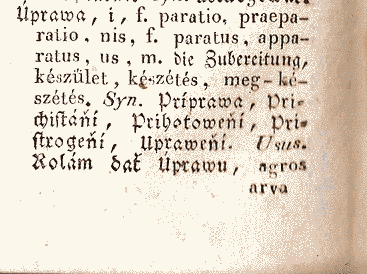 Úprawa, i, f. paratio, praepa-
ratio, nis, f. paratus, appa-
ratus, us, m. die Zubereitung,
készület, készétés, meg-ké-
szétés. Syn. Príprawa, Pri-
chistáňí, Prihotoweňí, Pri-
strogeňí, Upraweňí. Usus.
Rolám dať Úprawu, agros
arva